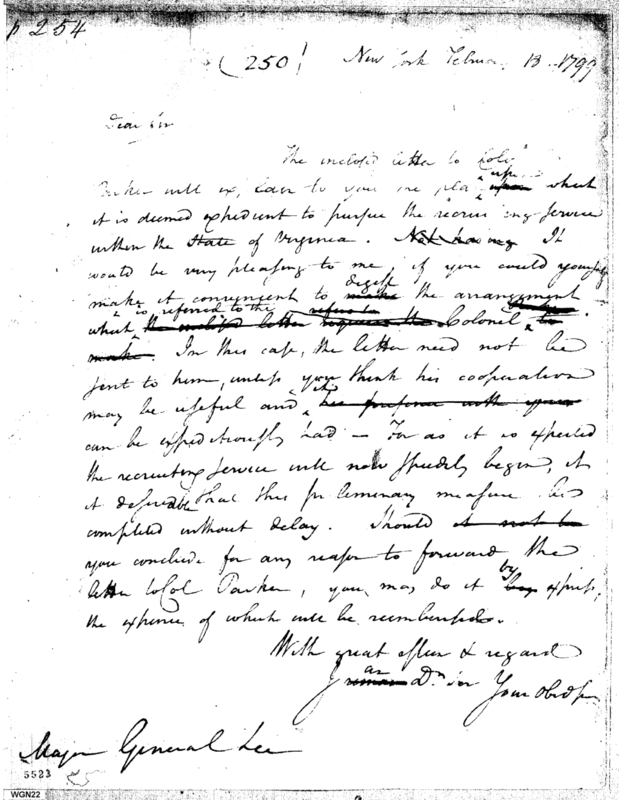 p 254
(250)
New York Februa. 13. 1799
Dear Sir
The inclosed letter to Colo
Parker will explain to you the plan upon upon which
it is deemed expedient to pursue the recruiting service
within the State of Virginia. Not having It
would be very pleasing to me, if you could yourself
make it convenient to make digest the arrangement
which is referred to the the inclosed letter requires the Colonel to
make. In this case, the letter need not be
sent to him, unless you think his cooperation
may be useful and his presence with you
can be expeditiously had — For as it is expected
the recruiting service will now speedily begin, it
it desireable that this preliminary measure be
completed without delay. Should it not be
you conclude for any reason to forward the
letter to Col Parker, you may do it by express,
the expence of which will be reimbursed.
With great esteem & regard
I remain am Dr Sir Your obed s
Major General Lee
5523
25
WGN22